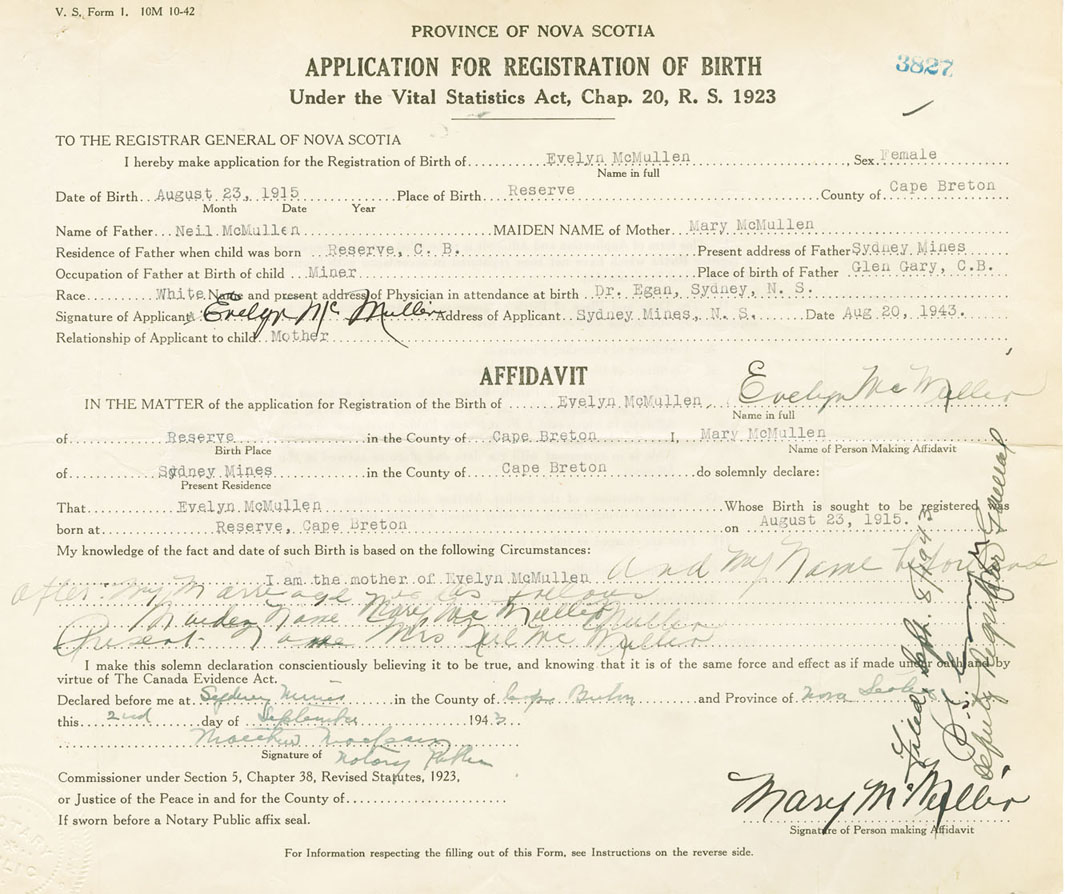 V. S. Form 1. 10M 10-42
PROVINCE OF NOVA SCOTIA
3827
APPLICATION FOR REGISTRATION OF BIRTH
Under the Vital Statistics Act, Chap. 20, R. S. 1923
TO THE REGISTRAR GENERAL OF NOVA SCOTIA
I hereby make application for the Registration of Birth of Evelyn McMullen, Sex Female
Name in full
Date of Birth August 23, 1915 Place of Birth Reserve County of Cape Breton
Month Date Year
Name of Father Neil McMullen MAIDEN NAME of Mother Mary McMullen
Residence of Father when child was born Reserve, C. B. Present address of Father Sydney Mines
Occupation of Father at Birth of child Miner Place of birth of Father Glen Gary, C.B.
Race White Name and present address of Physician in attendance at birth Dr. Egan, Sydney, N. S.
Signature of Applicant Evelyn Mc Mullen Address of Applicant Sydney Mines, N. S. Date Aug 20, 1943.
Relationship of Applicant to child Mother
AFFIDAVIT
IN THE MATTER of the application for Registration of the Birth of Evelyn McMullen, Evelyn Mc Mullin
Name in full
of Reserve in the County of Cape Breton I, Mary McMullen
Birth Place Name of Person Making Affidavit
of Sydney Mines in the County of Cape Breton do solemnly declare:
Present Residence
That Evelyn McMullen Whose Birth is sought to be registered was
born at Reserve, Cape Breton on August 23, 1915.
My knowledge of the fact and date of such Birth is based on the following Circumstances:
I am the mother of Evelyn McMullen and my Name before and
after my Marreage was as follows
Maiden Name Mary Mc Mullin
Present Name Mrs Neil Mc Mullin
I make this solemn declaration conscientiously believing it to be true, and knowing that it is of the same force and effect as if made under oath and by
virtue of The Canada Evidence Act.
Declared before me at Sydney Mines in the County of Cape Breton and Province of Nova Scotia
this 2nd day of September 1943
Signature of Notary Public
Commissioner under Section 5, Chapter 38, Revised Statutes, 1923,
or Justice of the Peace in and for the County of
If sworn before a Notary Public affix seal.
Mary McMullin
Signature of Person making Affidavit
For Information respecting the filling out of this Form, see Instructions on the reverse side.
Filed Sept. 8/1943
Deputy Registrar General